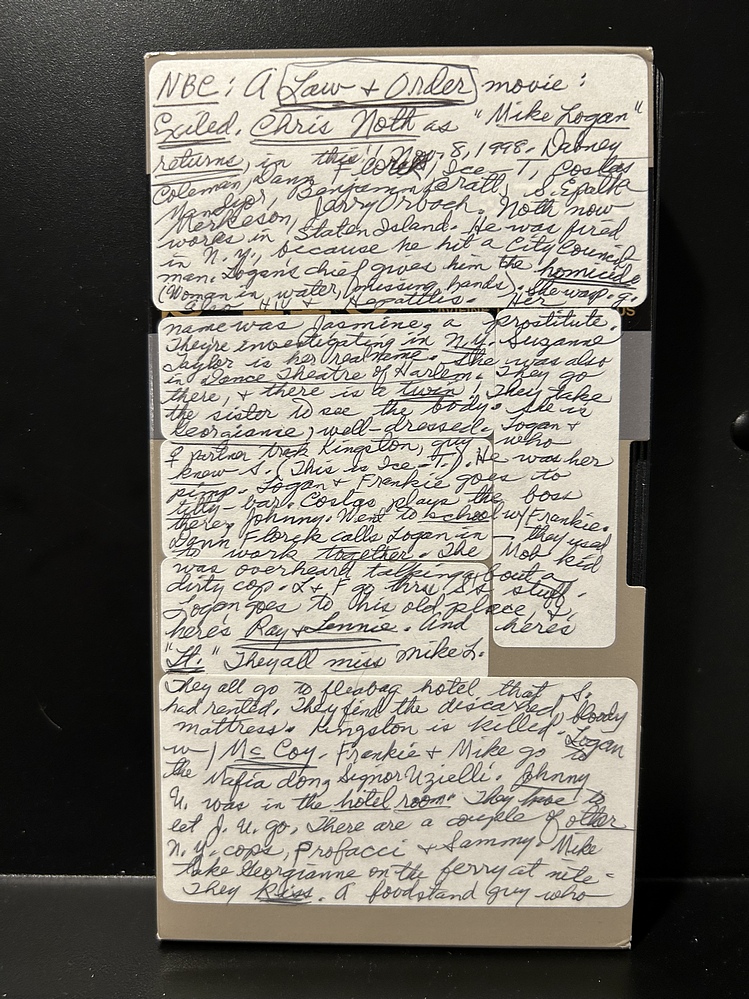 NBC: A Law + Order movie:
Exiled. Chris Noth as "Mike Logan"
returns, in this! Nov. 8, 1998. Dabney
Coleman, Dann Florek, Ice-T, Costas
Mandylor, Benjamin Bratt, S. Epatha
Merkeson, Jerry Orbach. Noth now
works in Staten Island. He was fired
in N.Y., because he hit a City Council
man. Logan's chief gives him the homicide
(Woman in water, missing hands). She was p.g.
also HIV + Hepatitis. Her
name was Jasmine, a prostitute.
They're investigating in N.Y. Suzanne
Taylor is her real name. She was also
in Dance Theatre of Harlem. They go
there, + there is a twin! They take
the sister to see the body. She is
Georgianne, well-dressed. Logan +
& partner track Kingston, guy who
knew S. (This is Ice-T.) He was her
pimp. Logan + Frankie goes to
titty-bar. Costas plays the boss
there, Johnny. Went to school w/ Frankie.
Dann Florek calls Logan in — they used
to work together. The Mob kid
was overheard talking about a
dirty cop. L + F go thru S.'s stuff.
Logan goes to his old place, +
here's Ray + Lennie. And here's
"Lt." They all miss Mike L.
They all go to fleabag hotel that S.
had rented. They find the discarded, bloody
mattress. Kingston is killed. Logan
w/ McCoy. Frankie + Mike go to
the Mafia don, Signor Uzielli. Johnny
U. was in the hotel room. They have to
let J. U. go. There are a couple of other
N.Y. cops, Profacci + Sammy. Mike
take Georgianne on the ferry at nite-
They kiss. A foodstand guy who